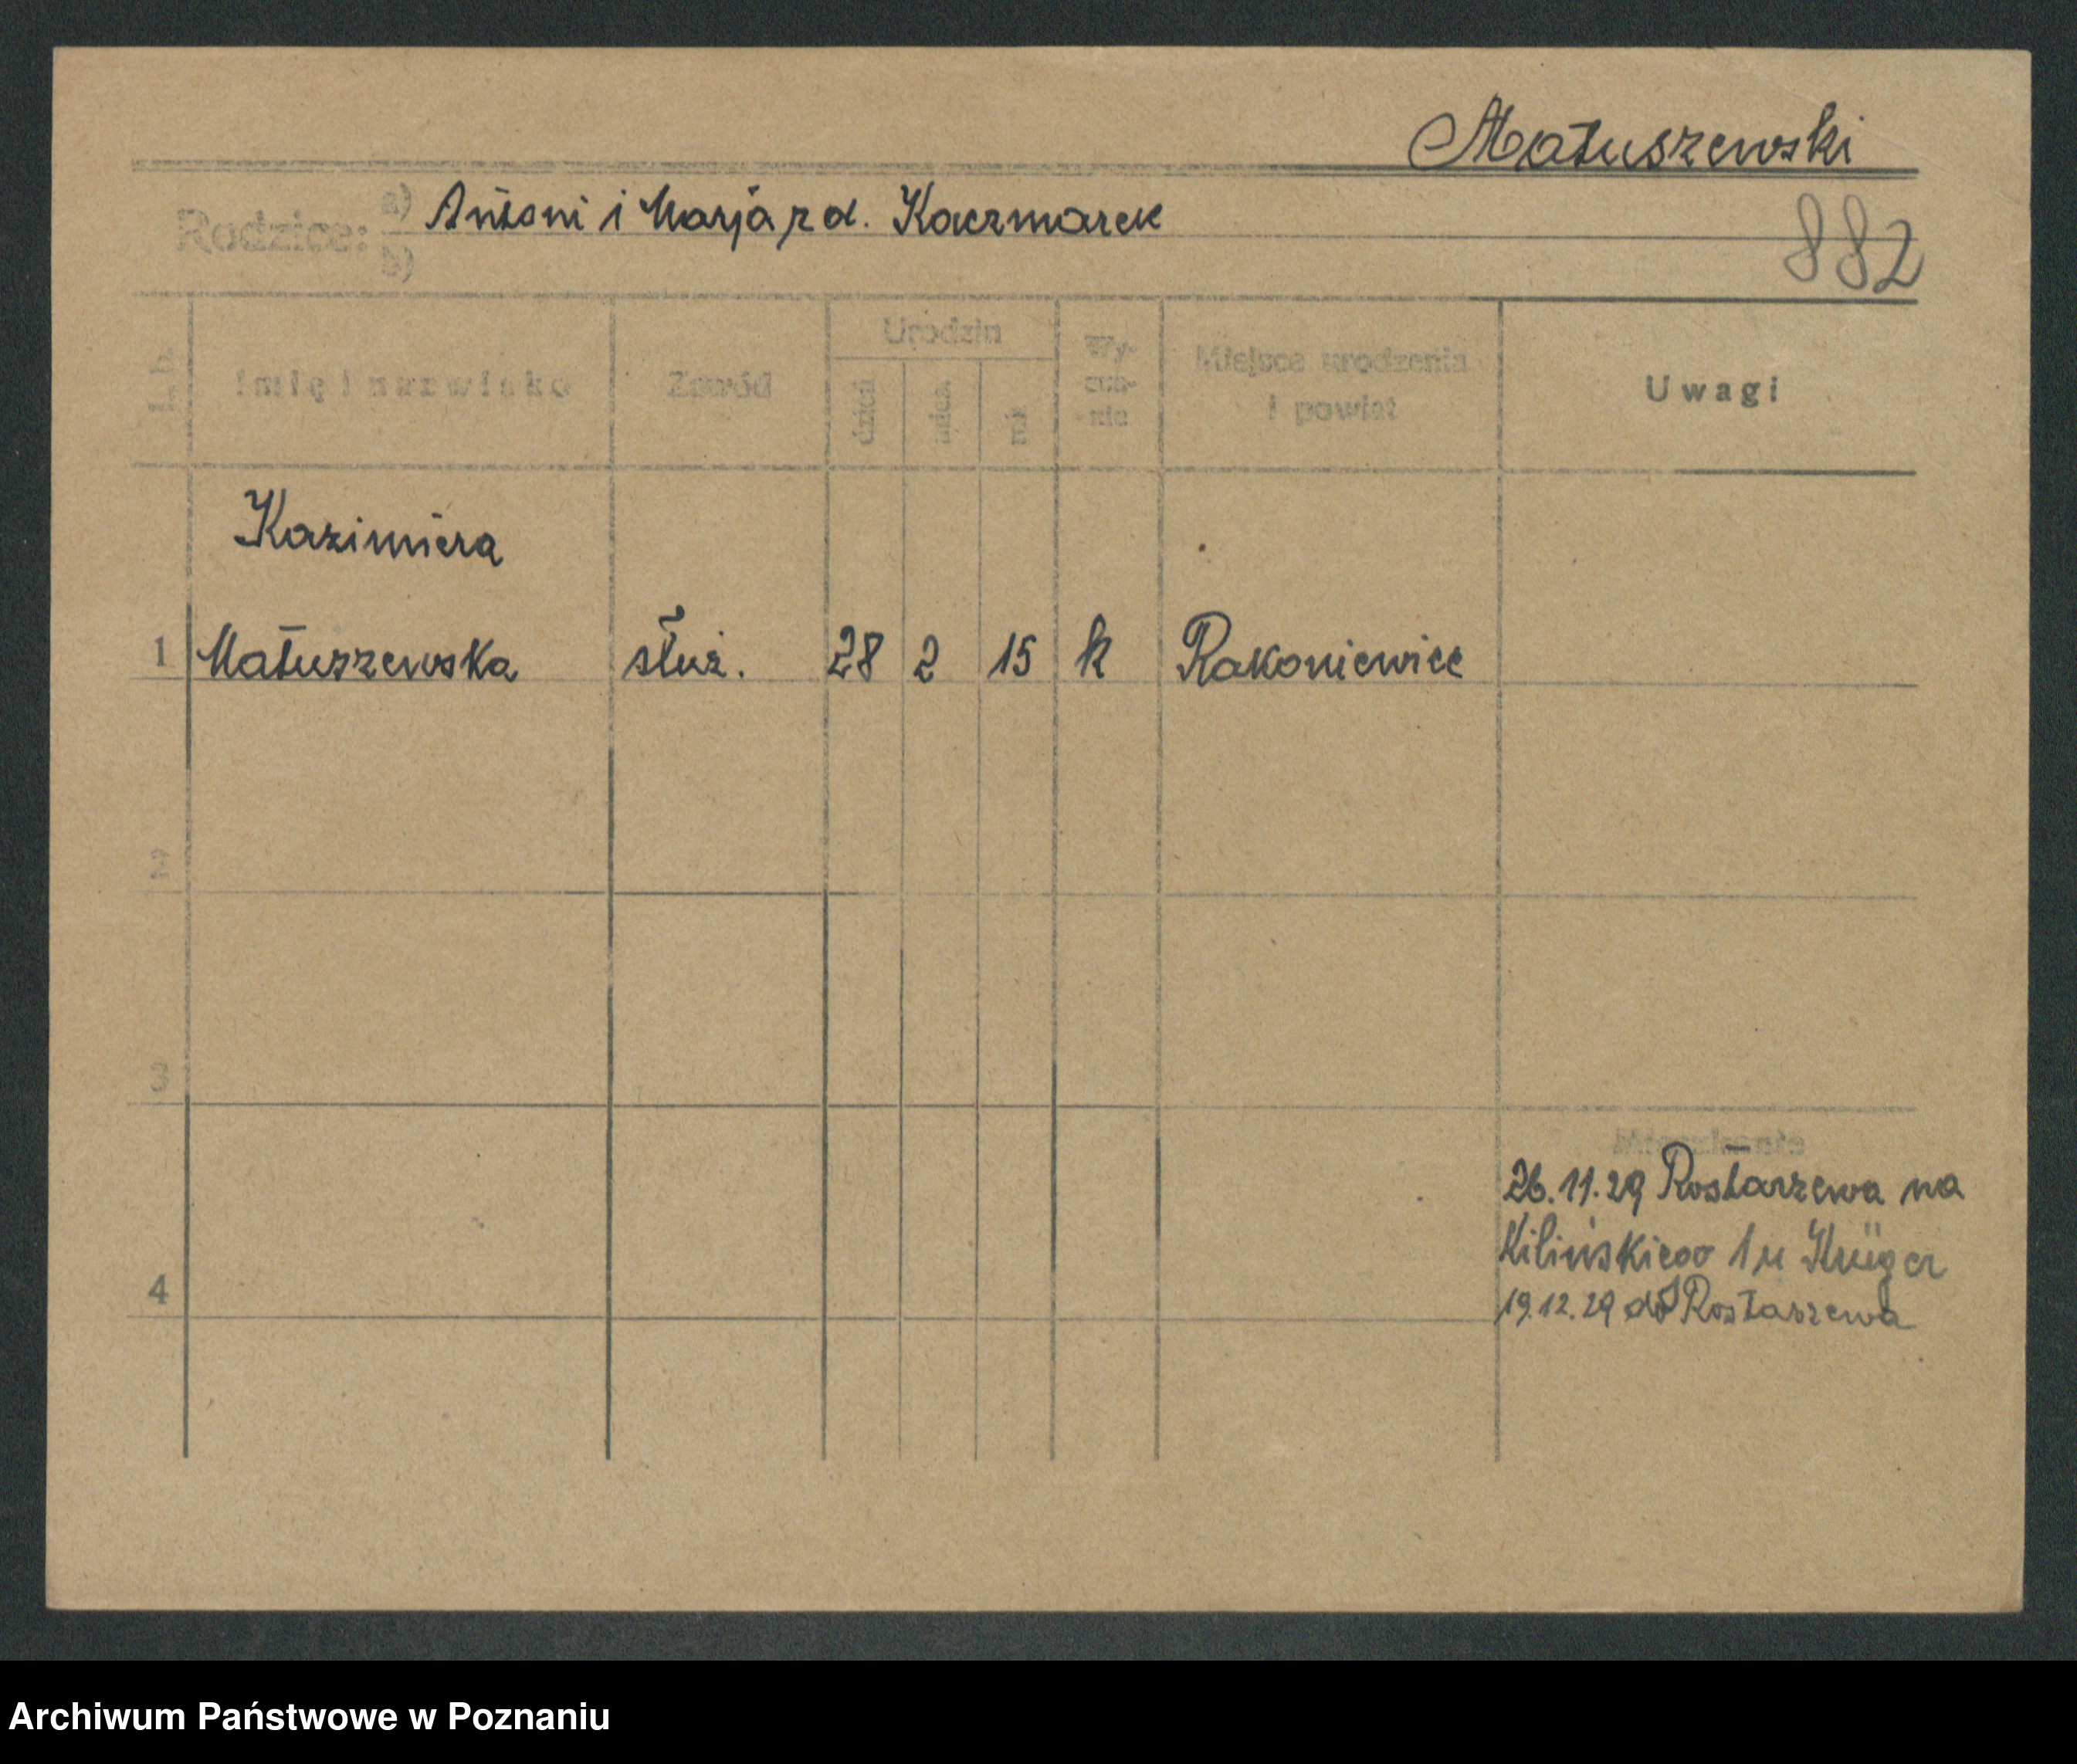 Matuszewski
Rodzice: a) Antoni i Marja z d. Kaczmarek
b)
882
L. b.
Imię i nazwisko
Zawód
Urodzin
dzień
mies.
rok
Wy-
zna-
nie
Miejsce urodzenia
i powiat
Uwagi
Kazimiera
1 Matuszewska służ. 28 2 15 k Rakoniewice
2
3
Mieszkanie
26.11.29 Rostarzewa na
Kilińskiego 1 u Krüger
4
19.12.29 do Rostarzewa
Archiwum Państwowe w Poznaniu